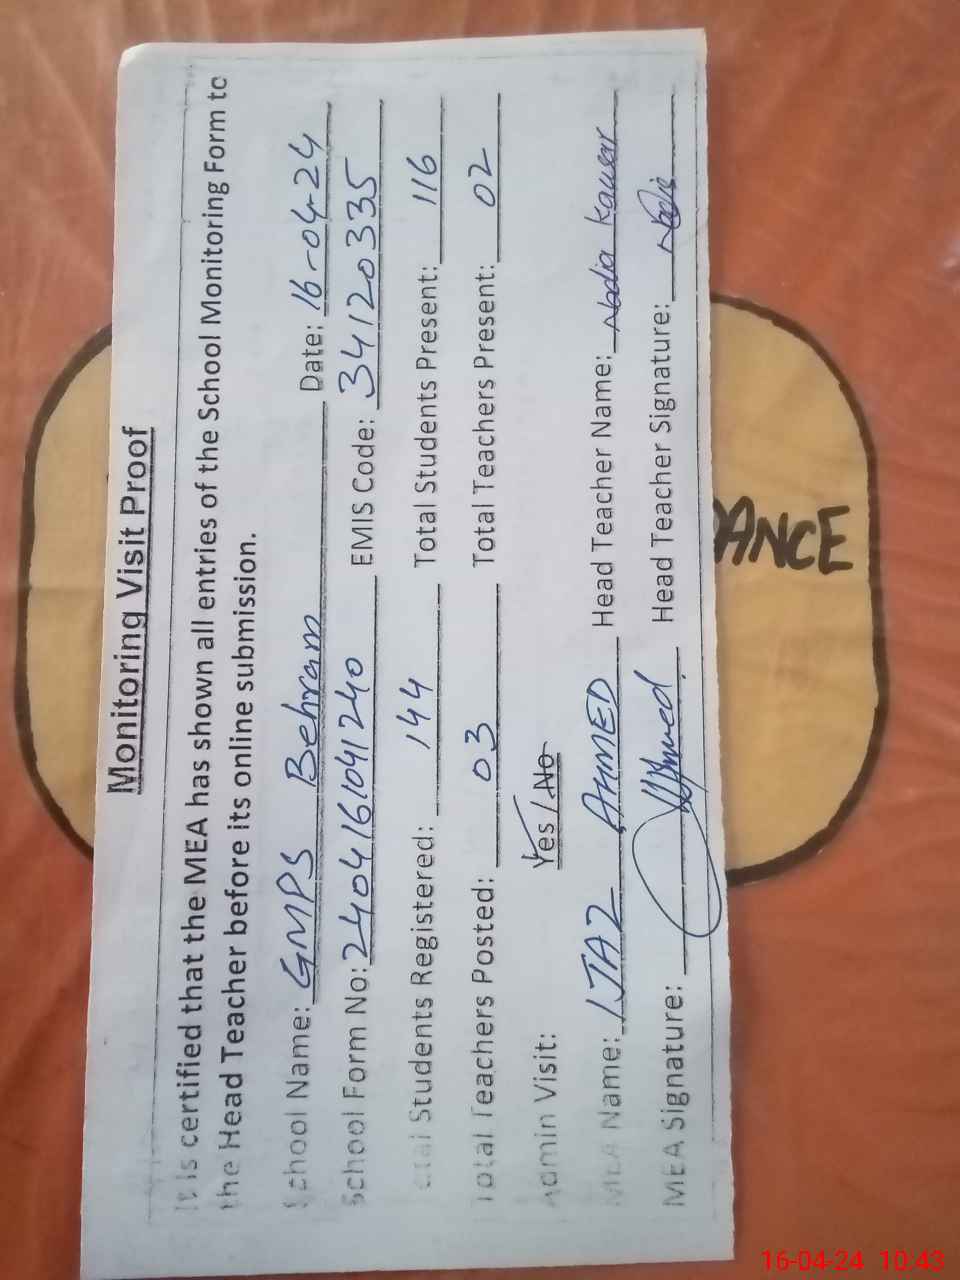 Monitoring Visit Proof
It is certified that the MEA has shown all entries of the School Monitoring Form to
the Head Teacher before its online submission.
School Name: GMPS Behram Date: 16-04-24
School Form No: 2404161041240 EMIS Code: 34120335
Total Students Registered: 144 Total Students Present: 116
Total Teachers Posted: 03 Total Teachers Present: 02
Admin Visit: Yes / No
MEA Name: IJAZ AHMED Head Teacher Name: Nadia Kausar
MEA Signature: Ahmed Head Teacher Signature: Nadia
ANCE
16-04-24 10:43